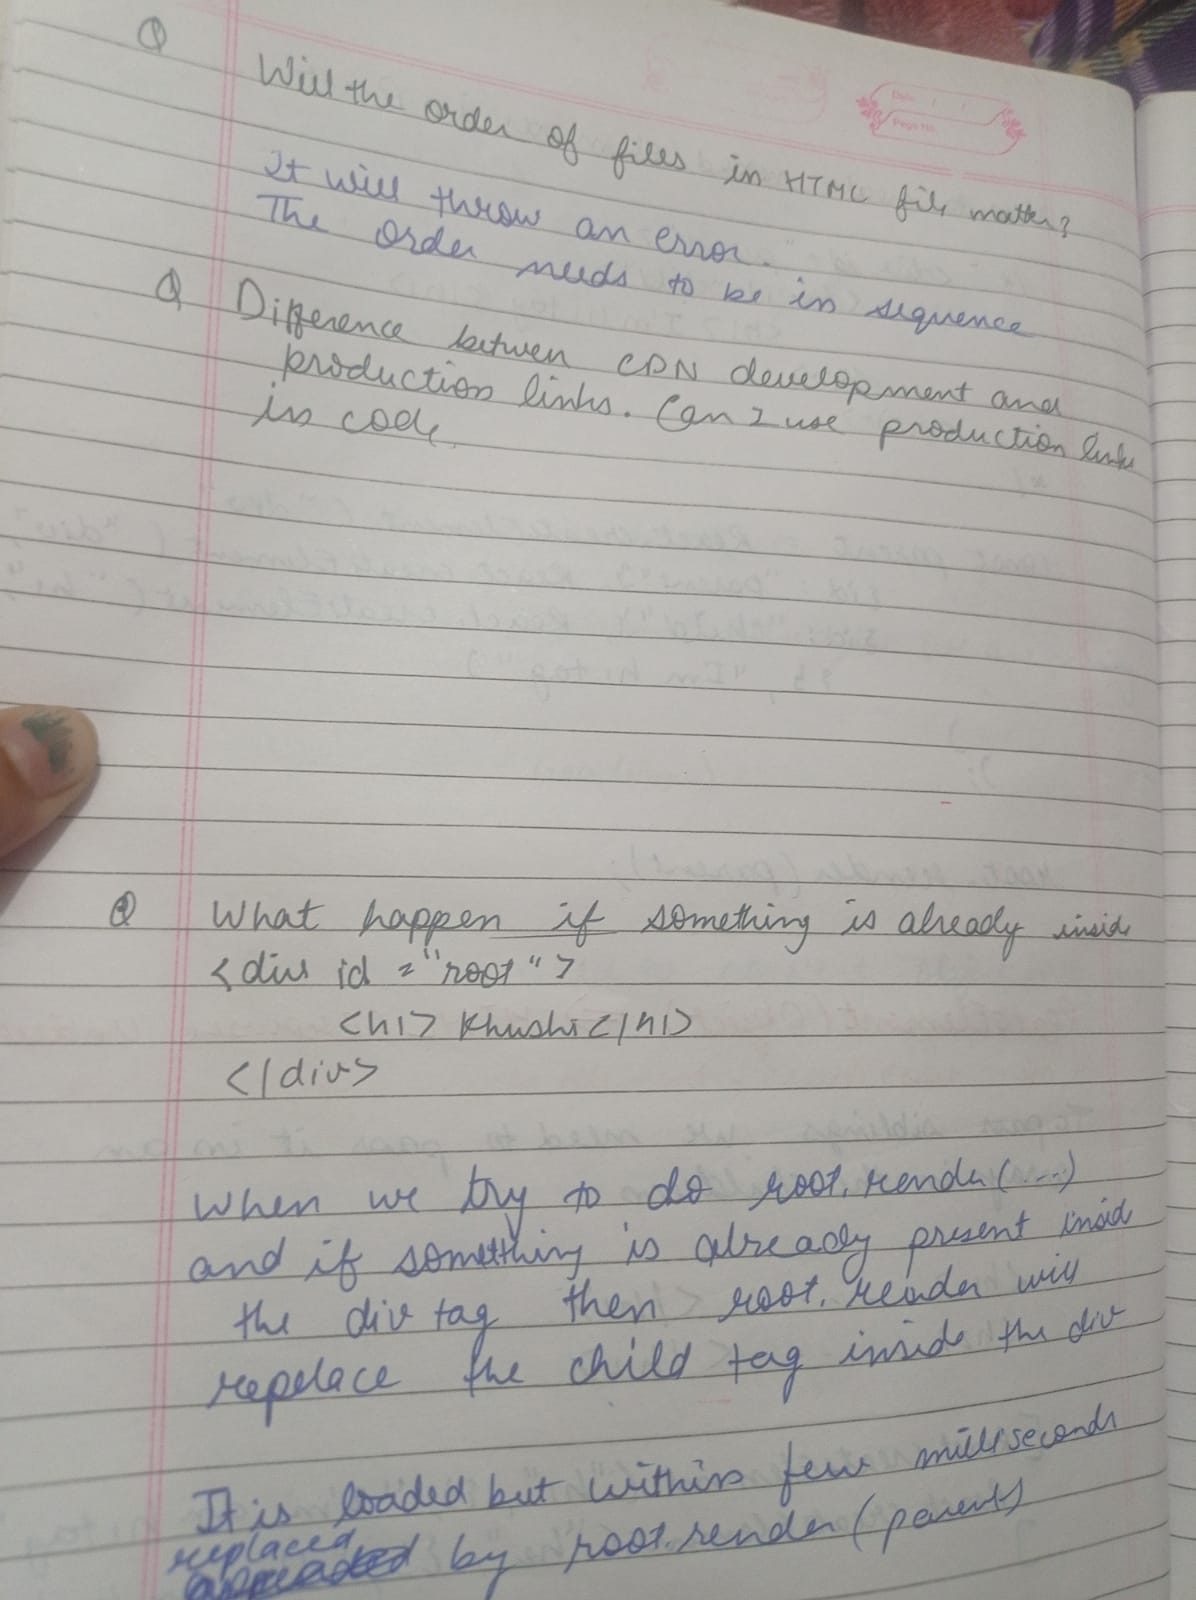 Q Will the order of files in HTML file matter?
It will throw an error.
The order needs to be in sequence
Q Difference betwen CDN development and
production links. Can I use production links
in code.
Q What happen if something is already inside
<div id = "root">
<h1> Khushi </h1>
</div>
When we try to do root.render(...)
and if something is already present insid
the div tag then root.render will
repelace the child tag inside the div
It is loaded but within few milliseconds
replaced
by root.render (parent)